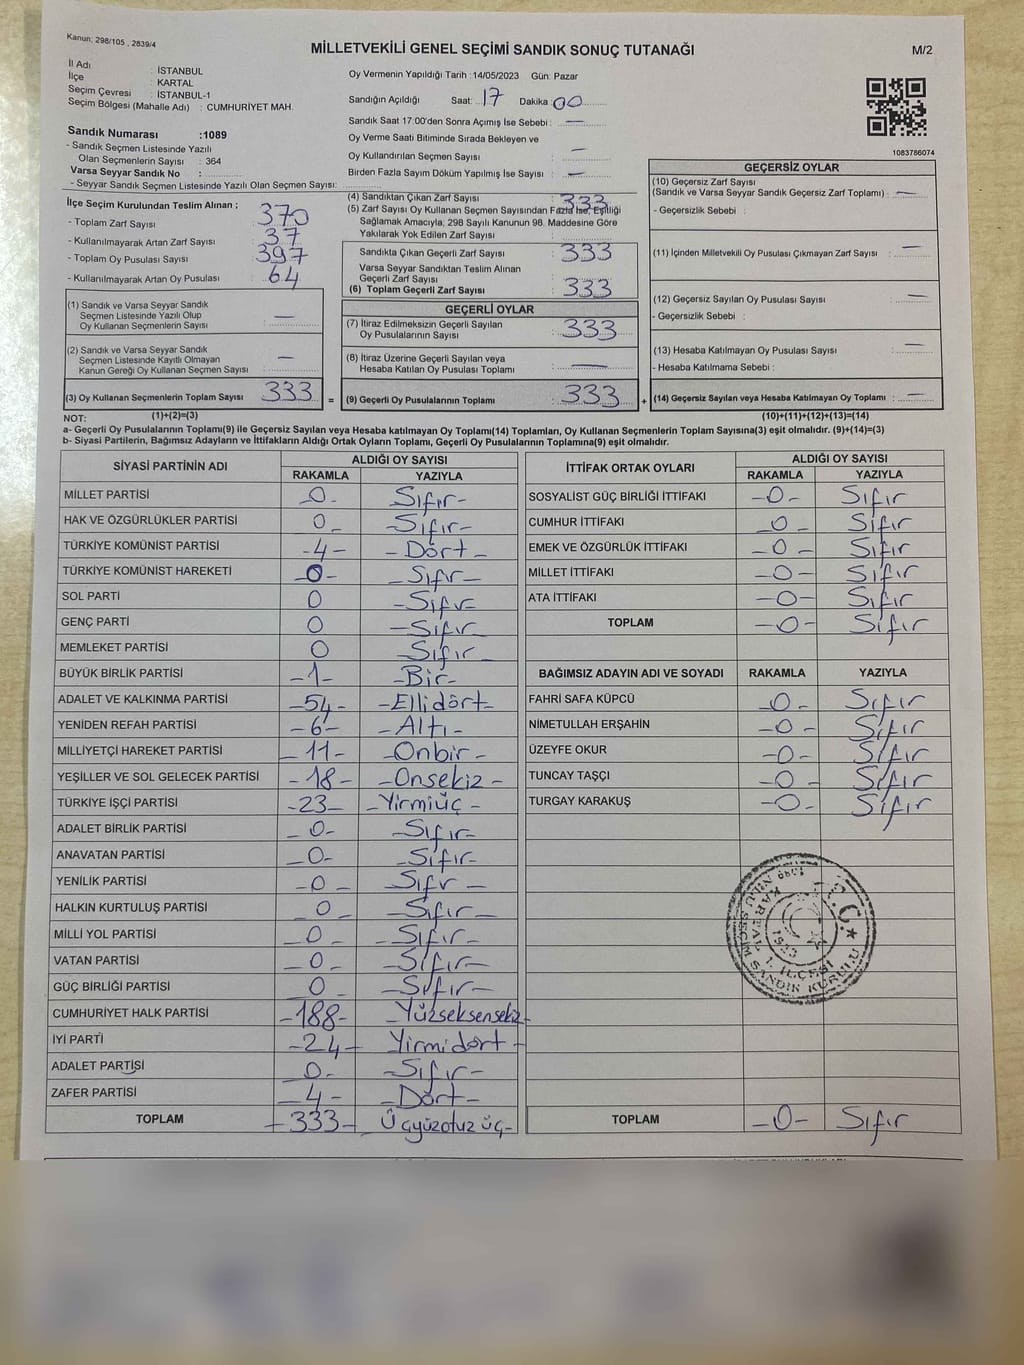 Kanun; 298/105 , 2839/4
MİLLETVEKİLİ GENEL SEÇİMİ SANDIK SONUÇ TUTANAĞI
M/2
İl Adı : İSTANBUL
İlçe : KARTAL
Seçim Çevresi : İSTANBUL-1
Seçim Bölgesi (Mahalle Adı) : CUMHURİYET MAH.
Oy Vermenin Yapıldığı Tarih :14/05/2023 Gün: Pazar
Sandığın Açıldığı Saat: 17 Dakika: 00
Sandık Saat 17:00'den Sonra Açımış İse Sebebi : —
Oy Verme Saati Bitiminde Sırada Bekleyen ve
Oy Kullandırılan Seçmen Sayısı : —
Birden Fazla Sayım Döküm Yapılmış İse Sayısı : —
1083786074
Sandık Numarası :1089
- Sandık Seçmen Listesinde Yazılı
Olan Seçmenlerin Sayısı : 364
Varsa Seyyar Sandık No :
- Seyyar Sandık Seçmen Listesinde Yazılı Olan Seçmen Sayısı:
İlçe Seçim Kurulundan Teslim Alınan :
- Toplam Zarf Sayısı : 370
- Kullanılmayarak Artan Zarf Sayısı : 37
- Toplam Oy Pusulası Sayısı : 397
- Kullanılmayarak Artan Oy Pusulası : 64
(1) Sandık ve Varsa Seyyar Sandık
Seçmen Listesinde Yazılı Olup
Oy Kullanan Seçmenlerin Sayısı : —
(2) Sandık ve Varsa Seyyar Sandık
Seçmen Listesinde Kayıtlı Olmayan
Kanun Gereği Oy Kullanan Seçmen Sayısı : —
(3) Oy Kullanan Seçmenlerin Toplam Sayısı 333 =
(4) Sandıktan Çıkan Zarf Sayısı : 333
(5) Zarf Sayısı Oy Kullanan Seçmen Sayısından Fazla İse, Eşitliği
Sağlamak Amacıyla; 298 Sayılı Kanunun 98. Maddesine Göre
Yakılarak Yok Edilen Zarf Sayısı :
Sandıkta Çıkan Geçerli Zarf Sayısı : 333
Varsa Seyyar Sandıktan Teslim Alınan
Geçerli Zarf Sayısı :
(6) Toplam Geçerli Zarf Sayısı : 333
GEÇERLİ OYLAR
(7) İtiraz Edilmeksizin Geçerli Sayılan
Oy Pusulalarının Sayısı : 333
(8) İtiraz Üzerine Geçerli Sayılan veya
Hesaba Katılan Oy Pusulası Toplamı : —
(9) Geçerli Oy Pusulalarının Toplamı : 333 +
GEÇERSİZ OYLAR
(10) Geçersiz Zarf Sayısı
(Sandık ve Varsa Seyyar Sandık Geçersiz Zarf Toplamı) : —
- Geçersizlik Sebebi :
(11) İçinden Milletvekili Oy Pusulası Çıkmayan Zarf Sayısı : —
(12) Geçersiz Sayılan Oy Pusulası Sayısı : —
- Geçersizlik Sebebi :
(13) Hesaba Katılmayan Oy Pusulası Sayısı : —
- Hesaba Katılmama Sebebi :
(14) Geçersiz Sayılan veya Hesaba Katılmayan Oy Toplamı : —
NOT: (1)+(2)=(3) (10)+(11)+(12)+(13)=(14)
a- Geçerli Oy Pusulalarının Toplamı(9) ile Geçersiz Sayılan veya Hesaba katılmayan Oy Toplamı(14) Toplamları, Oy Kullanan Seçmenlerin Toplam Sayısına(3) eşit olmalıdır. (9)+(14)=(3)
b- Siyasi Partilerin, Bağımsız Adayların ve İttifakların Aldığı Ortak Oyların Toplamı, Geçerli Oy Pusulalarının Toplamına(9) eşit olmalıdır.
SİYASİ PARTİNİN ADI ALDIĞI OY SAYISI
RAKAMLA YAZIYLA
MİLLET PARTİSİ 0- Sıfır-
HAK VE ÖZGÜRLÜKLER PARTİSİ 0- -Sıfır-
TÜRKİYE KOMÜNİST PARTİSİ -4- -Dört-
TÜRKİYE KOMÜNİST HAREKETİ -0- -Sıfır-
SOL PARTİ 0 -Sıfır-
GENÇ PARTİ 0 -Sıfır-
MEMLEKET PARTİSİ 0 -Sıfır-
BÜYÜK BİRLİK PARTİSİ -1- -Bir-
ADALET VE KALKINMA PARTİSİ -54- -Ellidört-
YENİDEN REFAH PARTİSİ -6- -Altı-
MİLLİYETÇİ HAREKET PARTİSİ -11- -Onbir-
YEŞİLLER VE SOL GELECEK PARTİSİ -18- -Onsekiz-
TÜRKİYE İŞÇİ PARTİSİ -23- -Yirmiüç-
ADALET BİRLİK PARTİSİ -0- -Sıfır-
ANAVATAN PARTİSİ -0- -Sıfır-
YENİLİK PARTİSİ -0- -Sıfr-
HALKIN KURTULUŞ PARTİSİ -0- -Sıfır-
MİLLİ YOL PARTİSİ -0- -Sıfır-
VATAN PARTİSİ -0- -Sıfır-
GÜÇ BİRLİĞİ PARTİSİ 0- -Sıfır-
CUMHURİYET HALK PARTİSİ -188- -Yüzseksensekiz-
İYİ PARTİ -24- Yirmidört-
ADALET PARTİSİ 0- -Sıfır-
ZAFER PARTİSİ -4- -Dört-
TOPLAM -333- -Üçyüzotuz üç-
İTTİFAK ORTAK OYLARI ALDIĞI OY SAYISI
RAKAMLA YAZIYLA
SOSYALİST GÜÇ BİRLİĞİ İTTİFAKI -0- Sıfır
CUMHUR İTTİFAKI -0- Sıfır
EMEK VE ÖZGÜRLÜK İTTİFAKI -0- Sıfır
MİLLET İTTİFAKI -0- Sıfır
ATA İTTİFAKI -0- Sıfır
TOPLAM -0- Sıfır
BAĞIMSIZ ADAYIN ADI VE SOYADI RAKAMLA YAZIYLA
FAHRİ SAFA KÜPCÜ -0- Sıfır
NİMETULLAH ERŞAHİN -0- Sıfır
ÜZEYFE OKUR -0- Sıfır
TUNCAY TAŞÇI -0- Sıfır
TURGAY KARAKUŞ -0- Sıfır
T.C.
KARTAL 1. İLÇESİ
1089 NOLU SEÇİM SANDIK KURULU
TOPLAM -0- Sıfır